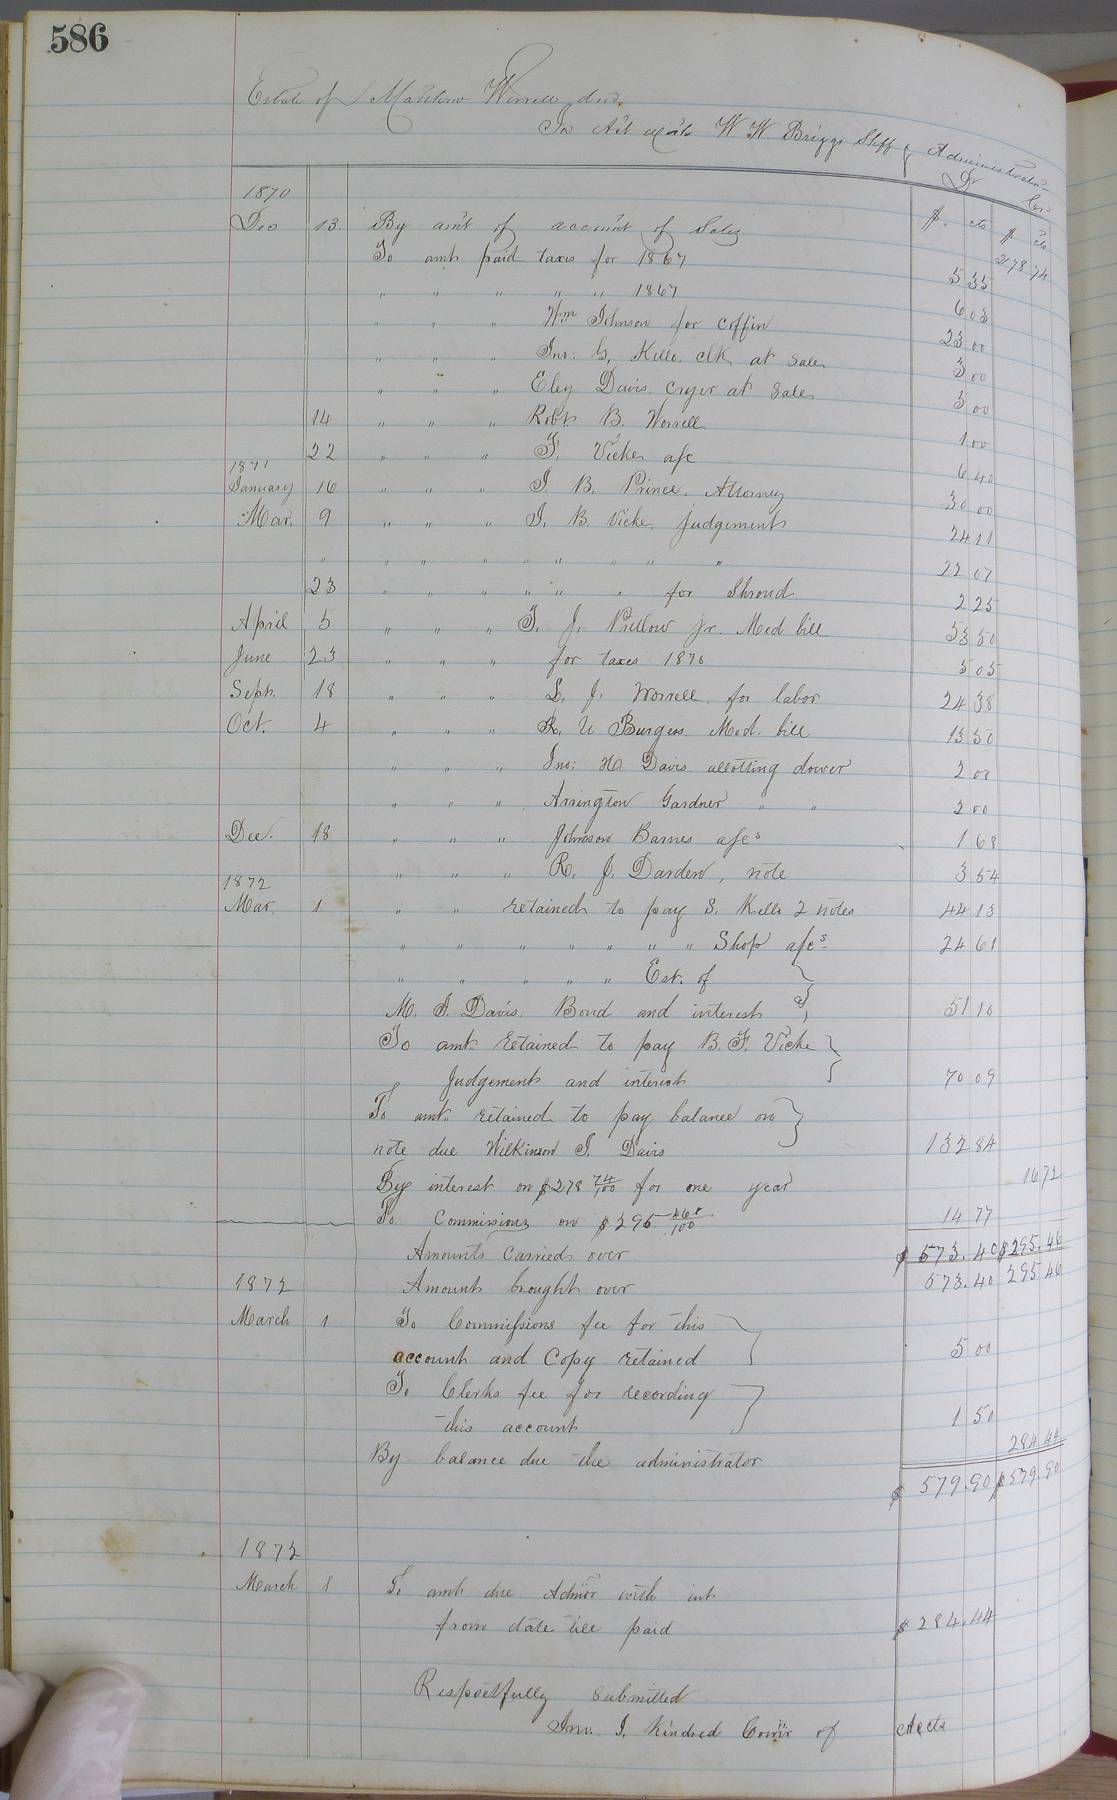 586
Estate of Matthew Worrell decd.
In Act with W. W. Briggs Shff & Administrator
Dr Cr
1870 $. cts $ cts
Dec 13. By amt of account of Sales 278 74
To amt paid taxes for 1867 5 35
" " " " " 1867 6 03
" " " Wm Johnson for coffin 23 00
" " " Jno: G, Kello. clk at Sale 3 00
" " " Eley Davis. cryer at Sale 3 00
14 " " " Robt. B. Worrell 1 00
22 " " " F. Vicke a/c 6 40
1871
January 16 " " " J. B. Prince. Attorney 30 00
Mar. 9 " " " J. B. Vicke. judgement 24 11
" " " " " " " " " 22 07
23 " " " " " " for Shroud 2 25
April 5 " " " T. J. Prellow jr. Med bill 53 50
June 23 " " " for taxes 1870 5 05
Sept. 18 " " " L. J. Worrell for labor 24 38
Oct. 4 " " " R. U Burgess Med. bill 13 50
" " " Jno: H. Davis allotting dower 2 00
" " " Arrington Gardner " " 2 00
Dec. 18 " " " Johnson Barnes a/cs 1 68
" " " R. J. Darden, note 3 54
1872
Mar. 1 " " retained to pay S. Kello 2 notes 44 13
" " " " " " " Shop a/cs 24 61
" " " " " Est. of
M. J. Davis. Bond and interest 51 10
To amt retained to pay B. F. Vicke
Judgement and interest 70 09
To amt. retained to pay balance on
note due Wilkinson J. Davis 132 84
By interest on $278 74/100 for one year 16 72
To Commissions on $295 46/100 14 77
Amounts Carried over $573.40 $295.46
1872 Amount brought over 573.40 295 46
March 1 To Commissions fee for this
account and Copy retained 5 00
To Clerks fee for recording
this account 1 50
By balance due the administrator 284.44
$579.90 $579.90
1872
March 1 To amt due Admor with int
from date till paid $284.44
Respectfully Submitted
Jno. J. Kindred Comr of Accts